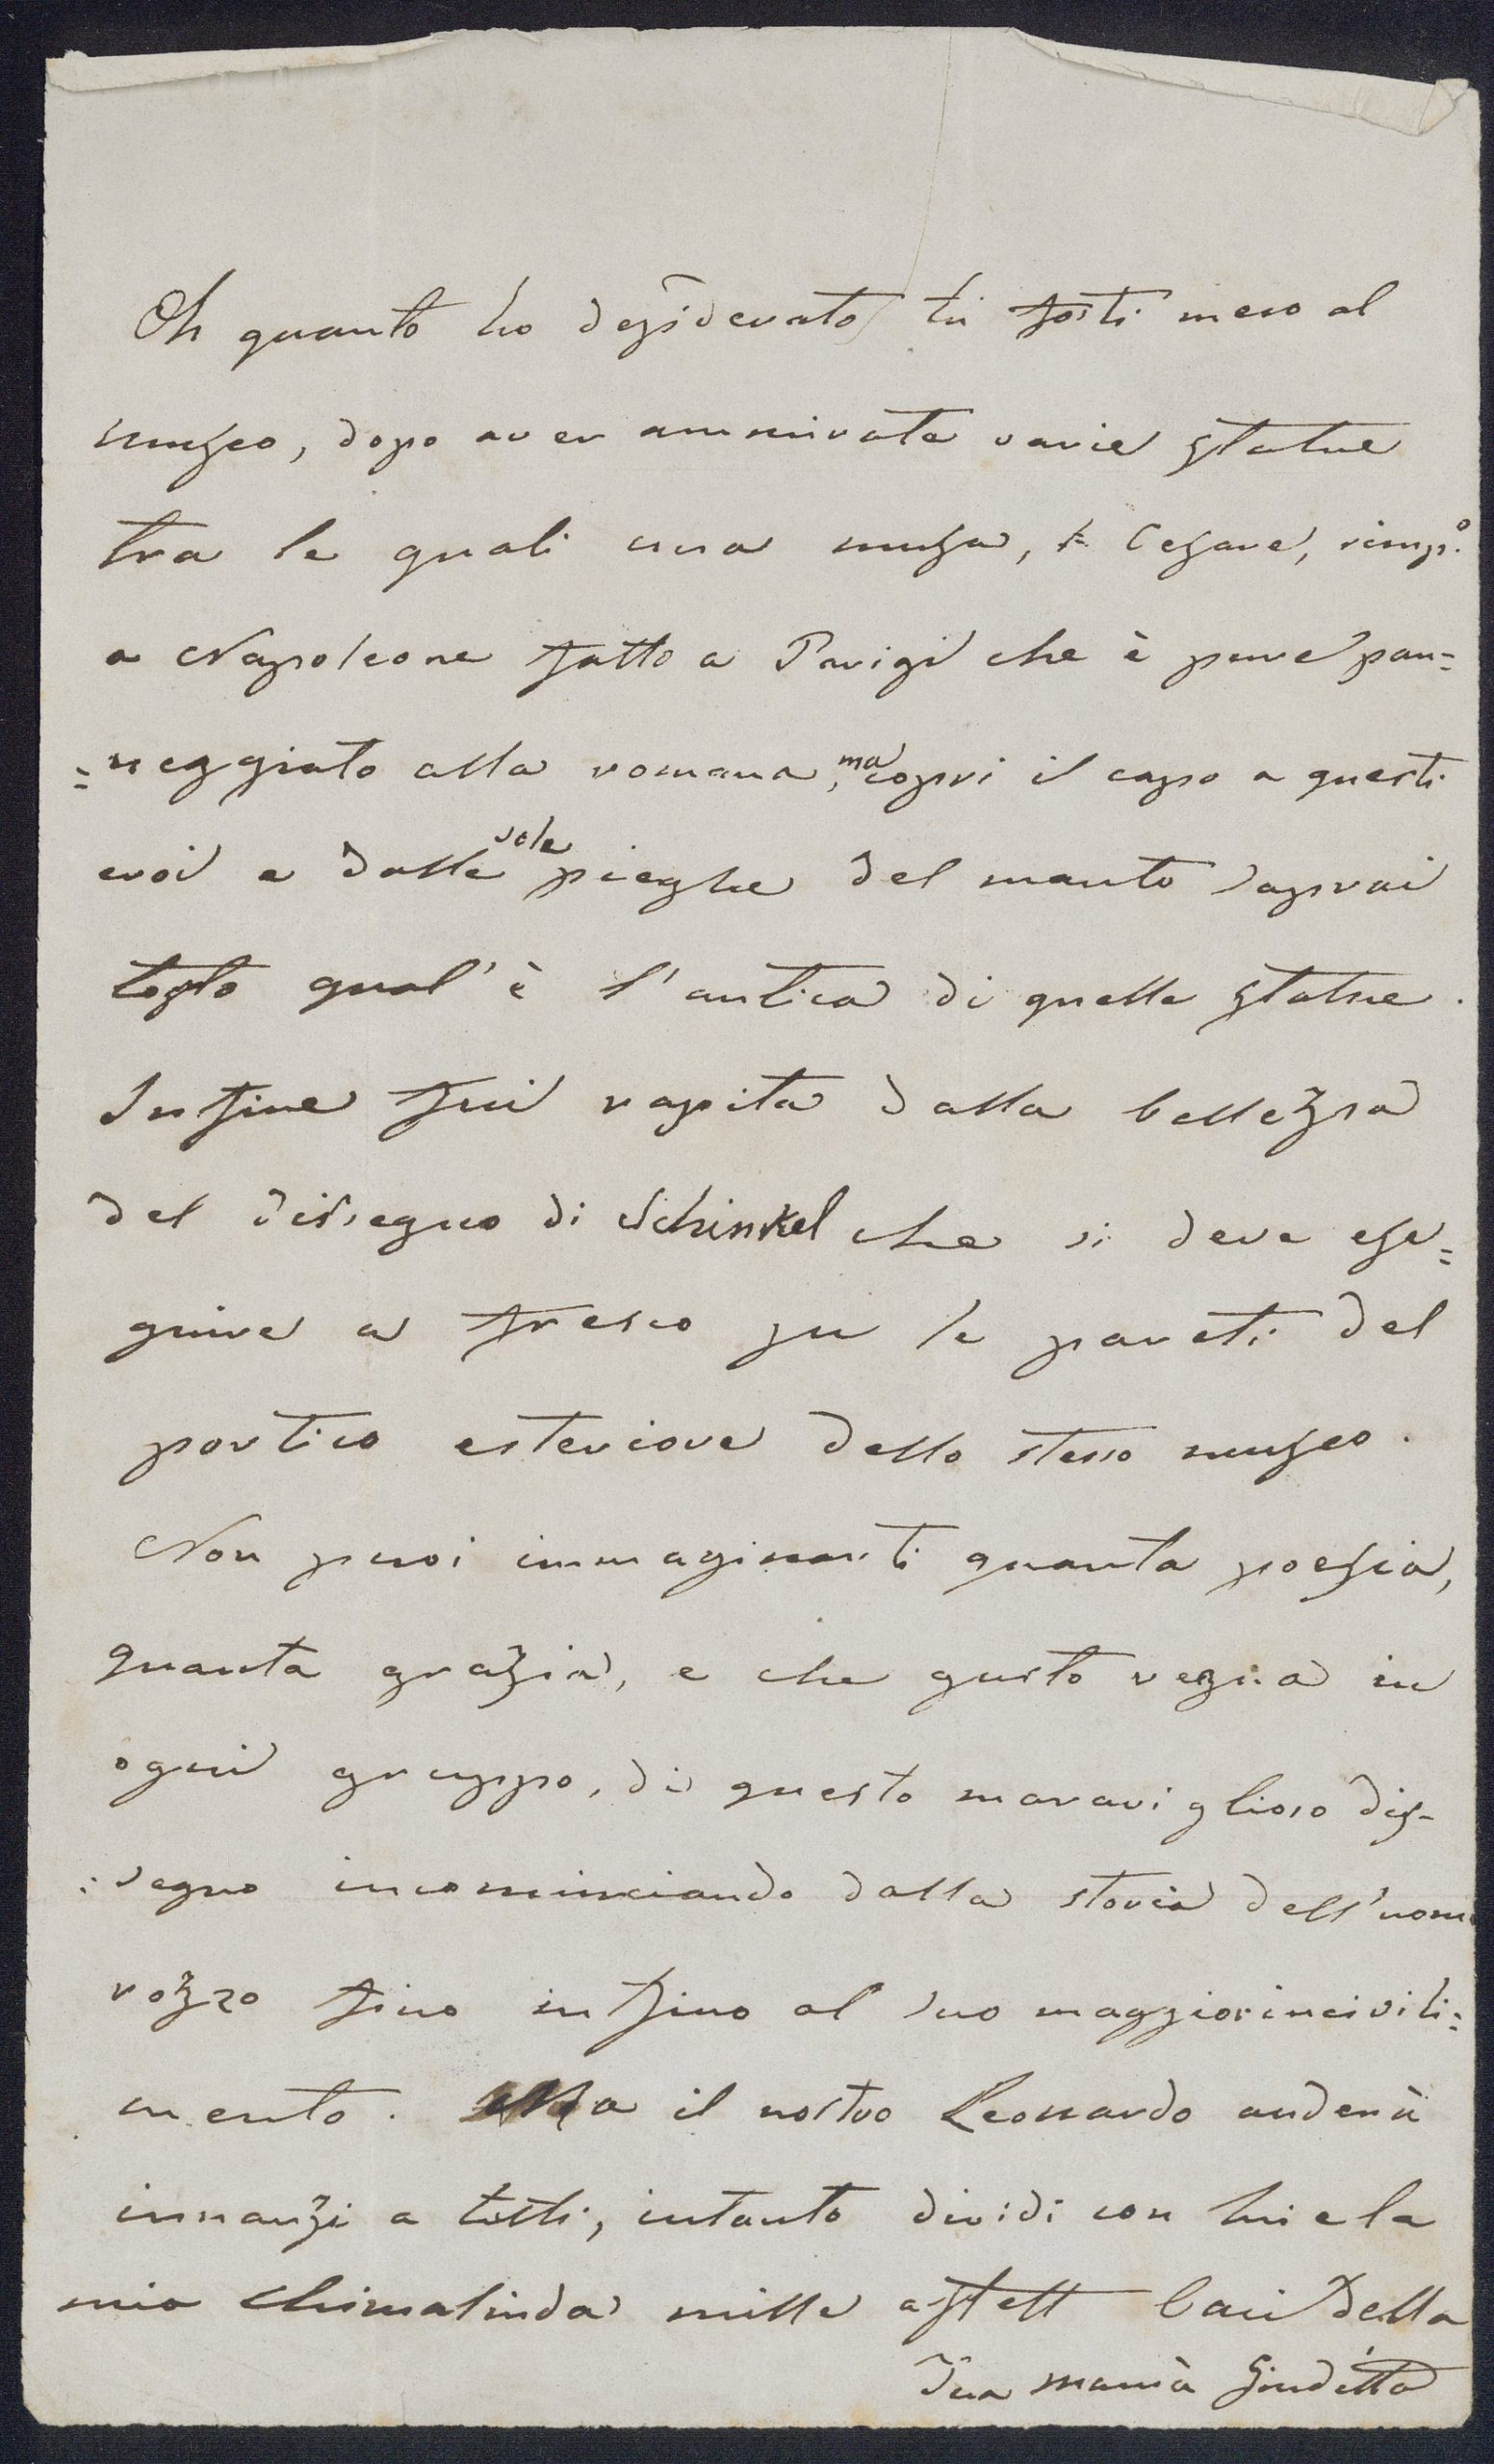 Oh quanto ho desiderato tu fosti meco al
museo, dopo aver ammirate varie statue
tra le quali una musa, Cesare, rimp.o
a Napoleone fatto a Parigi che è pure pan=
=neggiato alla romana, ma copri il capo a questi
eroi e dalle sole pieghe del manto saprai
tosto qual'è l'antica di quelle statue.
Infine fui rapita dalla bellezza
del dissegno di Schinkel che si deve ese=
guire a fresco su le pareti del
portico esteriore dello stesso museo.
Non puoi immaginarti quanta poesia,
quanta grazia, e che gusto regna in
ogni gruppo, di questo maraviglioso dis-
:segno incominciando dalla storia dell'uomo
rozzo fino infino al suo maggior incivili:
mento. Ma il nostro Leonardo anderà
innanzi a tutti, intanto dividi con lui e la
mia Chimalinda mille affett baci della
Tua mamà Giuditta